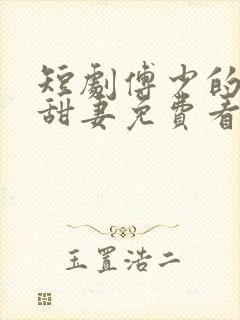 短劇傅少的
甜妻免費看
玉置浩二